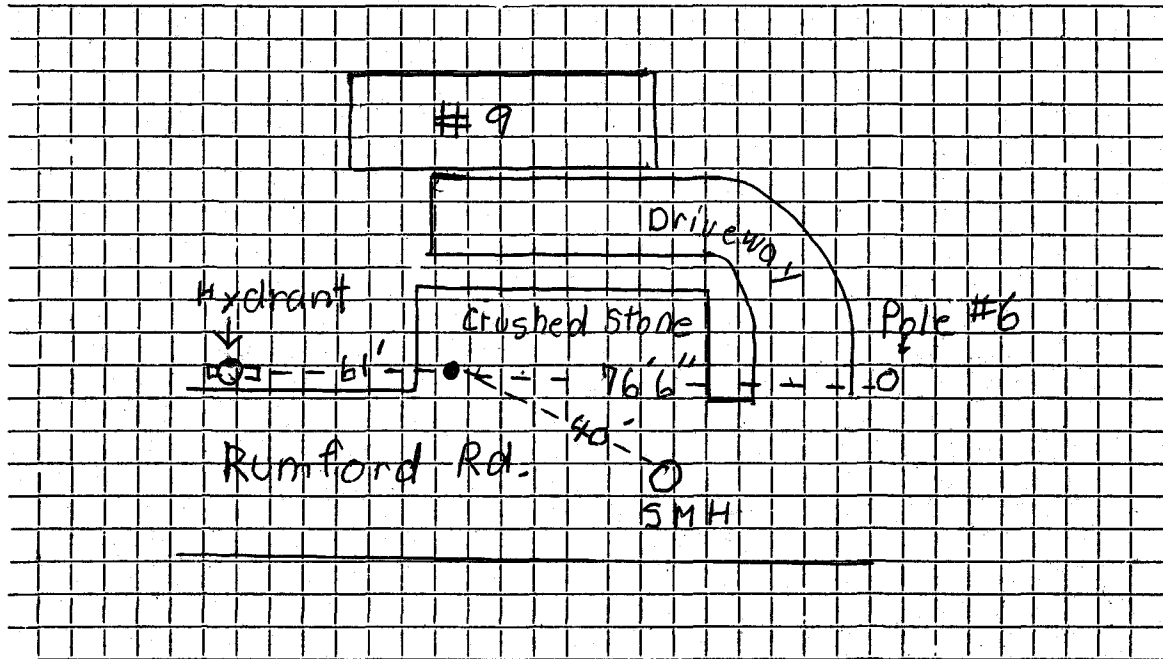 # 9
Driveway
Hydrant
Crushed Stone
Pole #6
61'
76'6"
40'
Rumford Rd.
SMH